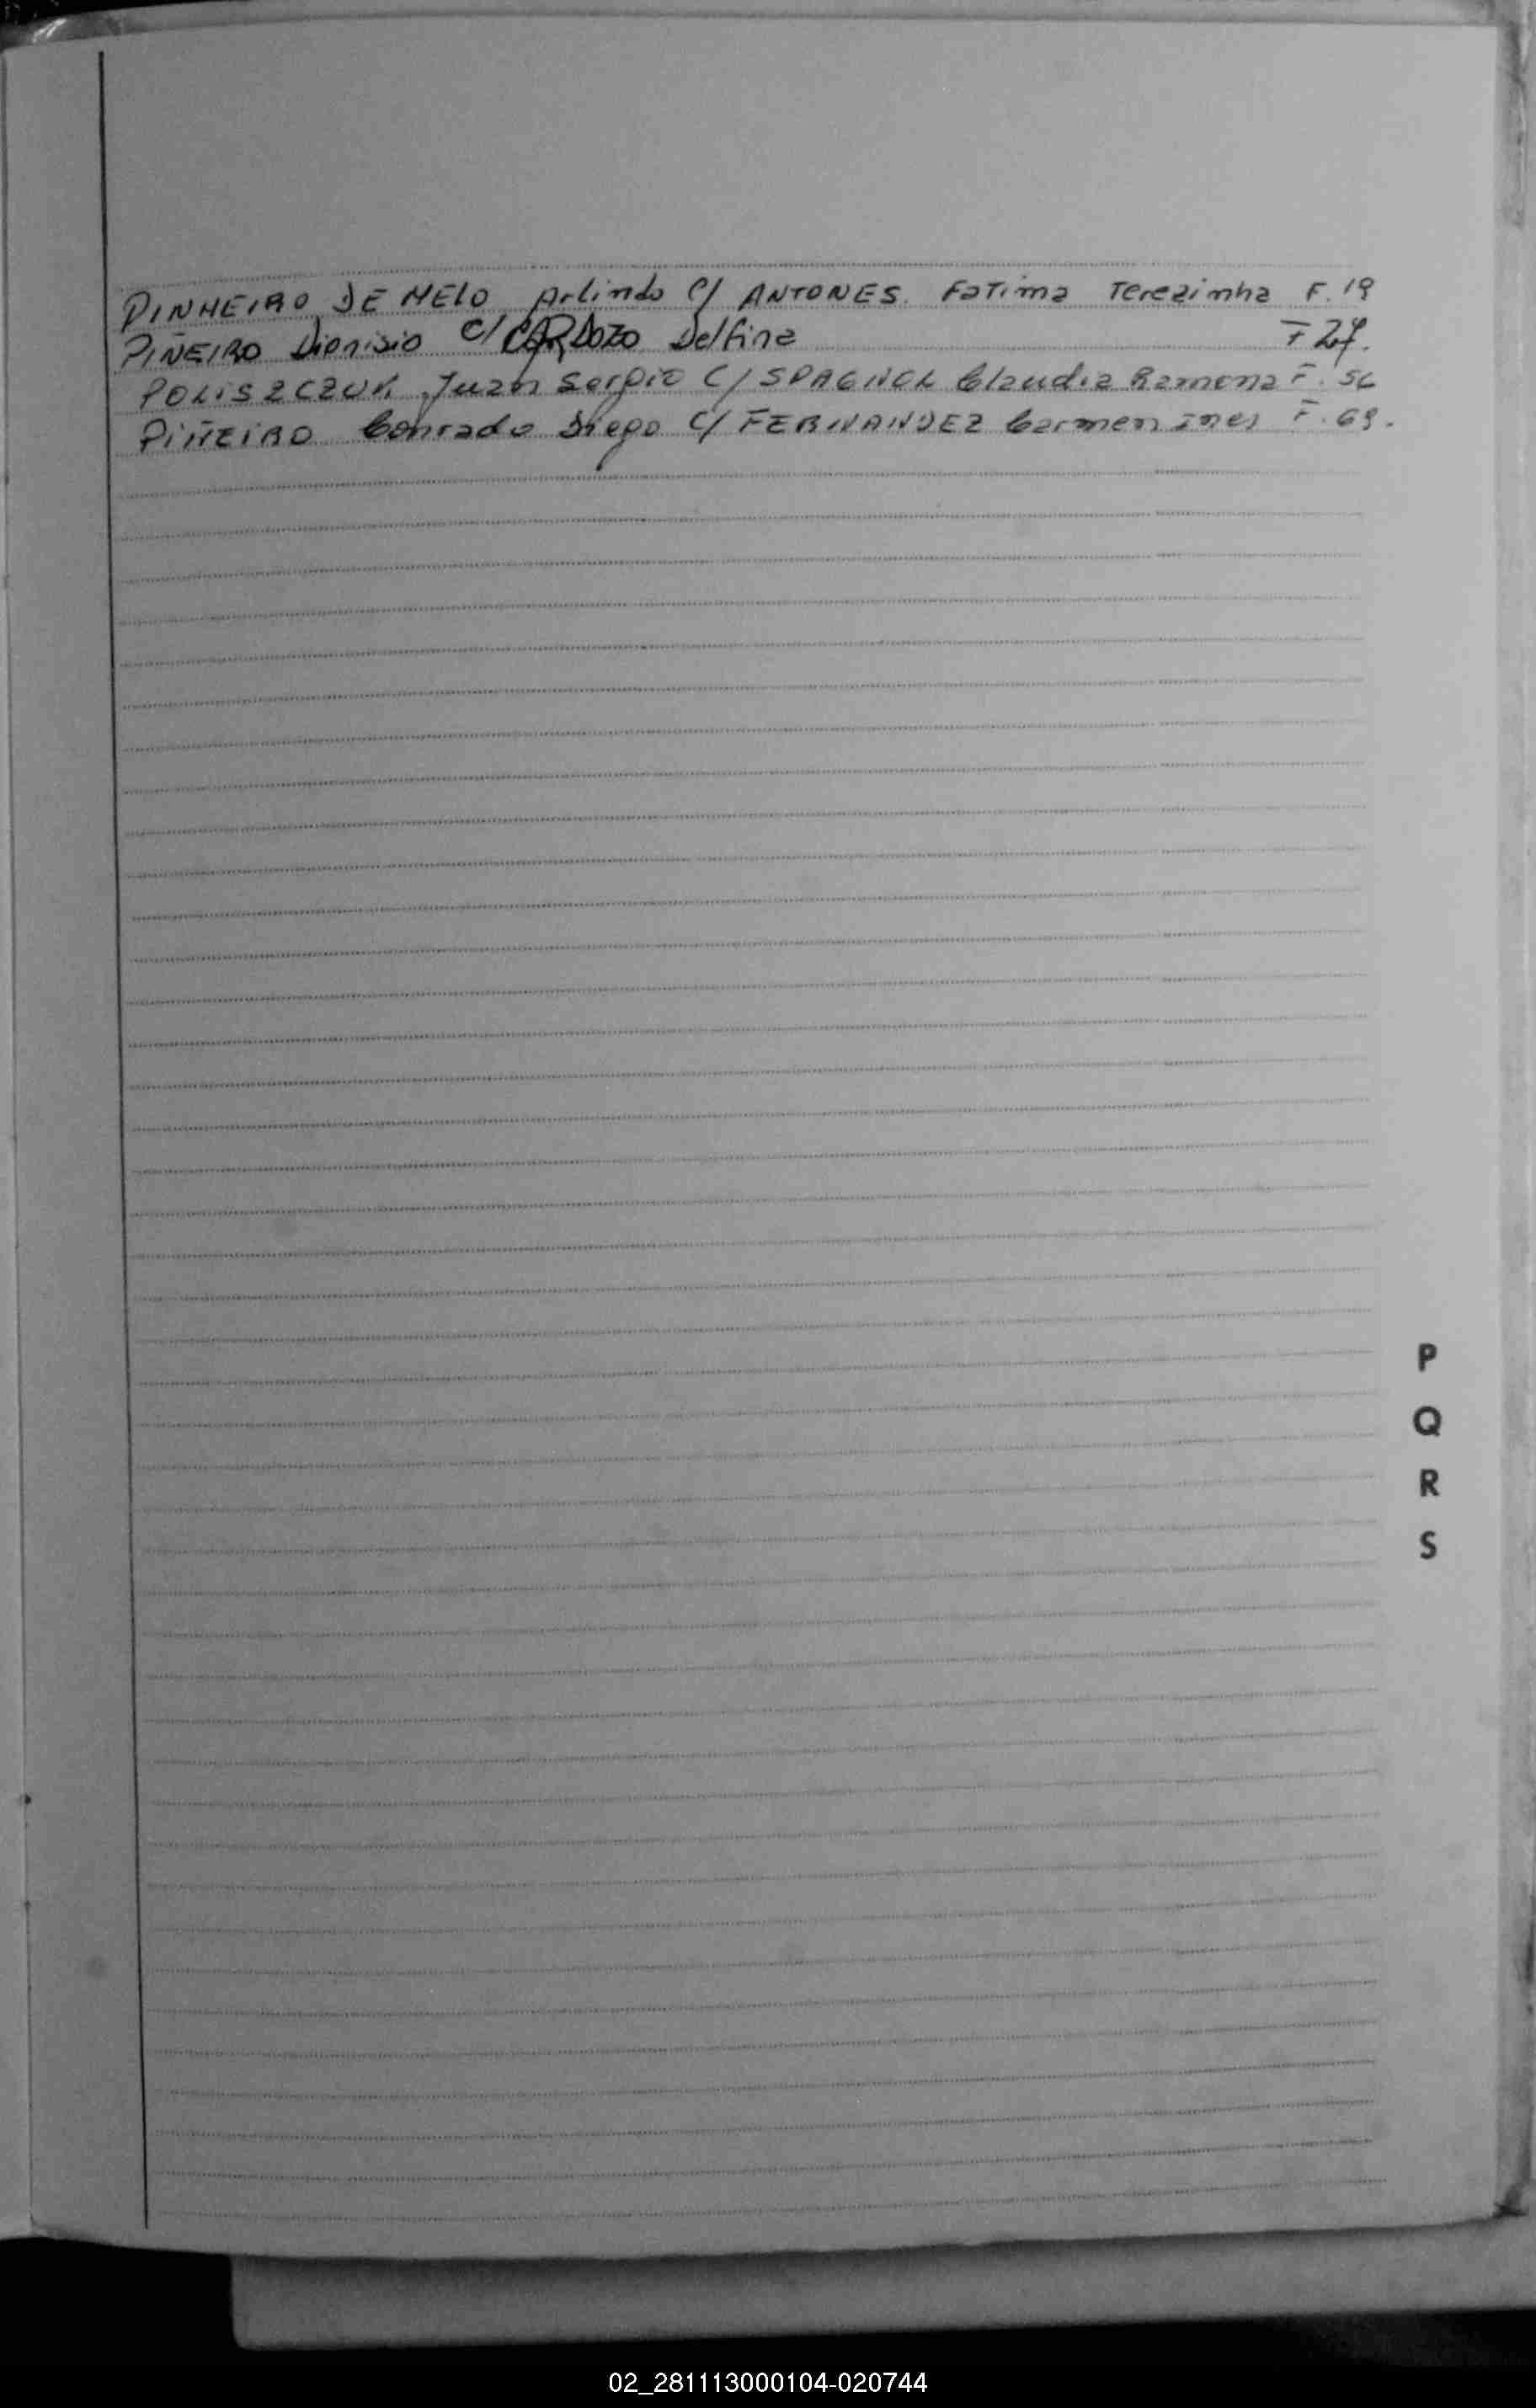 PINHEIRO DE MELO Arlindo C/ ANTONES. FaTima Terezinha F. 19
PIÑEIRO Dionisio C/ CARDOZO Delfina F 27.
POLISZCZUK Juan Sergio C/ SPAGNOL Claudia Ramona F.
PIÑEIRO Conrado Diego C/ FERNANDEZ Carmen Ines F. 69.
P
Q
R
S
02_281113000104-020744